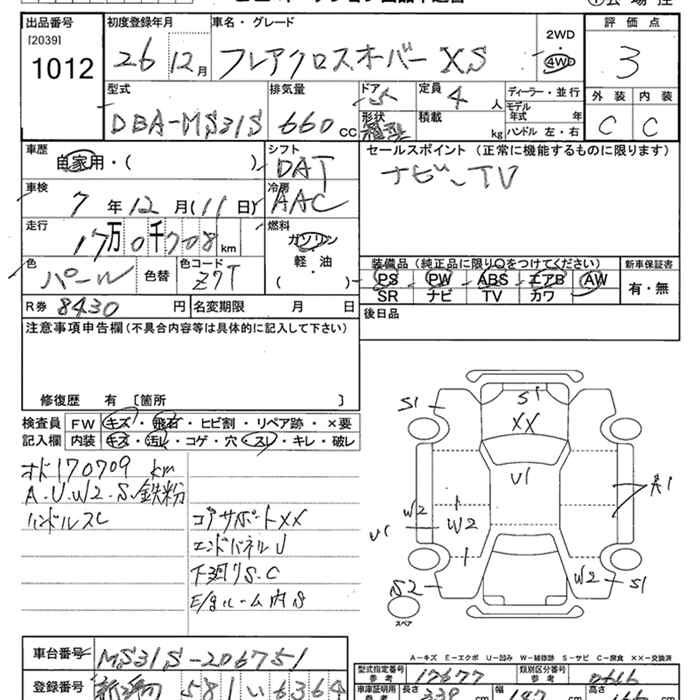 出品番号 初度登録年月 車名・グレード 2WD 評価点
[2039] 26 12月 フレアクロスオーバー XS 4WD 3
1012
型式 排気量 ドア 5 定員 4人 ディーラー・並行 外装 内装
DBA-MS31S 660cc 形状 積載 kg モデル年式 年 C C
ハンドル 左・右
車歴 シフト セールスポイント (正常に機能するものに限ります)
自家用・( ) DAT ナビ、TV
車検 冷房
7年12月(11日) AAC
走行 燃料
17万0千708km ガソリン
軽・油
色 色替 色コード ( ) 装備品(純正品に限り○をつけてください) 新車保証書
パール Z7T PS PW ABS エアB AW 有・無
R券 8430円 名変期限 月 日 SR ナビ TV カワ
注意事項申告欄(不具合内容等は具体的に記入して下さい) 後日品
修復歴 有 [箇所 ]
検査員 FW キズ・飛石・ヒビ割・リペア跡・×要
記入欄 内装 キズ・汚レ・コゲ・穴・スレ・キレ・破レ
オド170709km
A.U.W2.S.鉄粉
ハンドルスレ コアサポートXX
エンドパネルU
下廻りS.C
E/gルーム内S
S1 S1
XX
U1
A1
W2
U1 W2
S2 W2 S1
スペア
A-キズ E-エクボ U-凹み W-補修跡 S-サビ C-腐食 XX-交換済
車台番号 MS31S-206751
型式指定番号 参考 17677 類別区分番号 参考
登録番号 新潟 581 い 6364
車庫証明用 参考 長さ 339 cm 幅 cm 高さ cm